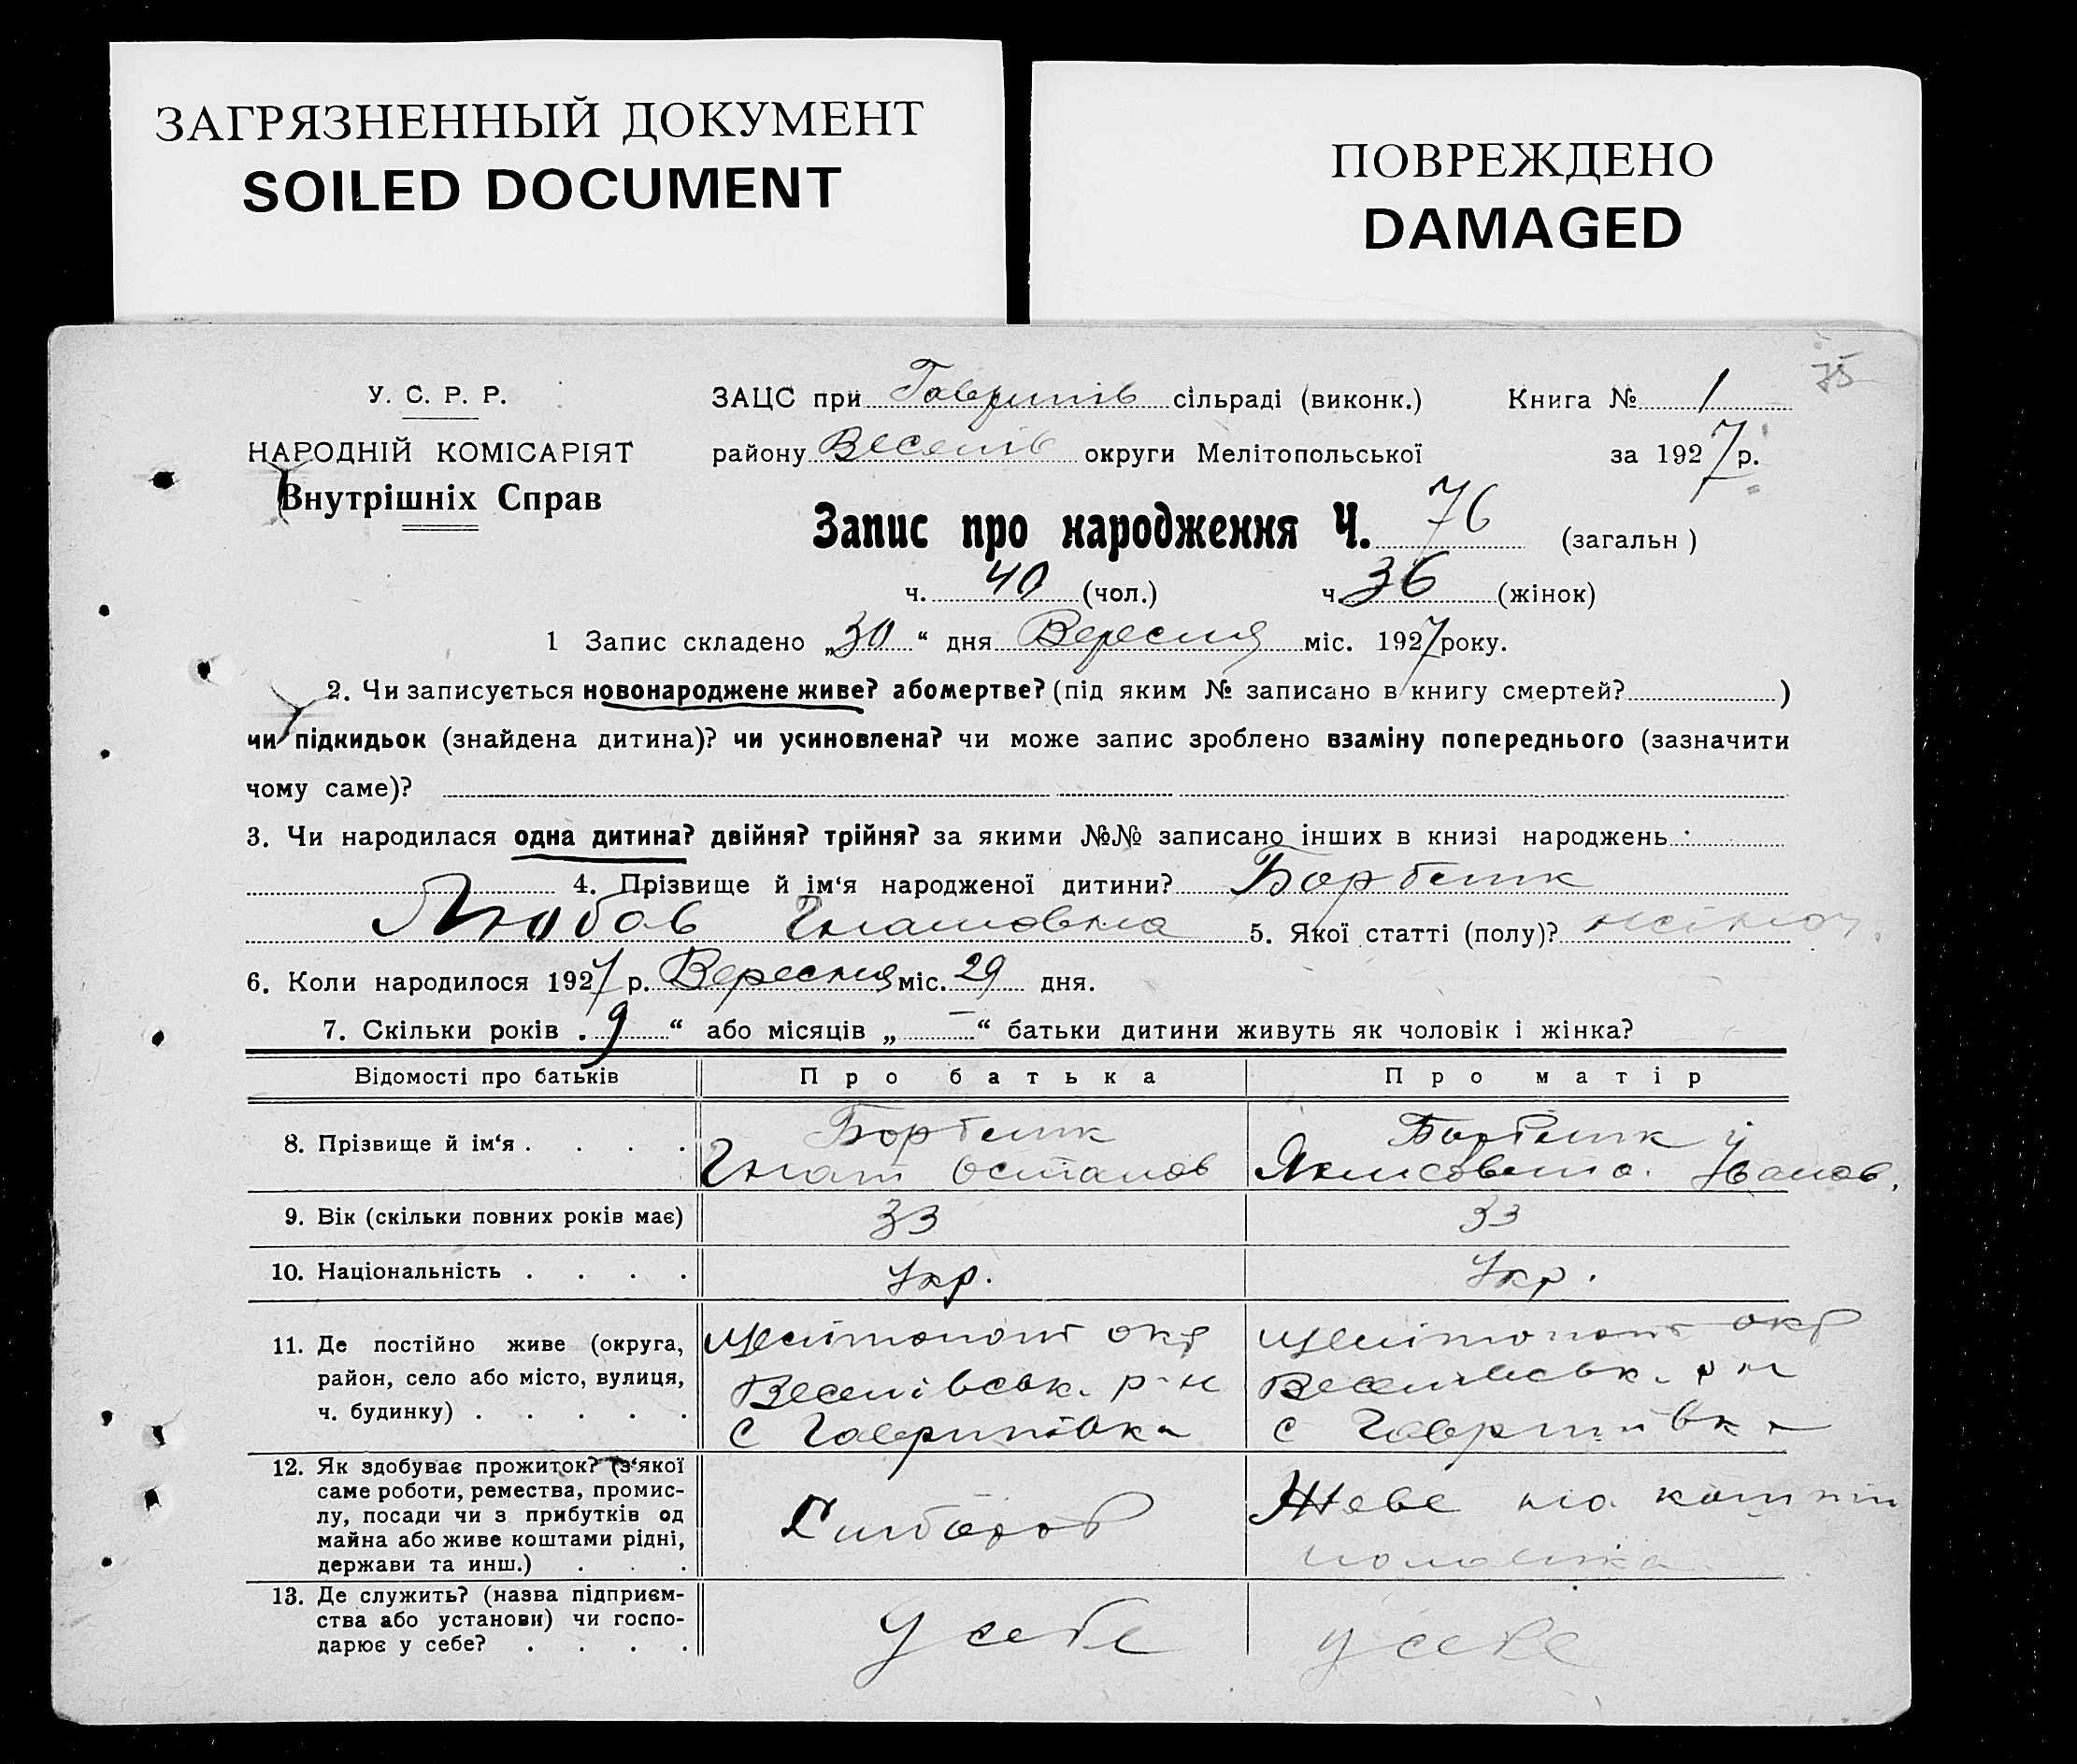 ЗАГРЯЗНЕННЫЙ ДОКУМЕНТ
SOILED DOCUMENT
ПОВРЕЖДЕНО
DAMAGED
75
У. С. Р. Р.
НАРОДНІЙ КОМІСАРІЯТ
Внутрішніх Справ
ЗАЦС при Гаврилів сільраді (виконк.) Книга № 1
району Веселів округи Мелітопольської за 1927 р.
Запис про народження Ч. 76 (загальн)
ч. 40 (чол.) ч 36 (жінок)
1 Запис складено „30“ дня Вересня міс. 1927 року.
2. Чи записується новонароджене живе? або мертве? (під яким № записано в книгу смертей? )
чи підкидьок (знайдена дитина)? чи усиновлена? чи може запис зроблено взаміну попереднього (зазначити
чому саме)?
3. Чи народилася одна дитина? двійня? трійня? за якими №№ записано інших в книзі народжень
4. Прізвище й ім‘я народженої дитини?
Любов Гнатовна 5. Якої статті (полу)? жіноч.
6. Коли народилося 1927 р. Вересня міс. 29 дня.
7. Скільки років „9“ або місяців „—“ батьки дитини живуть як чоловік і жінка?
Відомості про батьків Про батька Про матір
8. Прізвище й ім‘я . . . .
Гнат Остапов
9. Вік (скільки повних років має) 33 33
10. Національність . . . . Укр. Укр.
11. Де постійно живе (округа, Мелітопольт окр Мелітопольт окр
район, село або місто, вулиця, Веселівськ. р-н Веселівськ. р н
ч. будинку) . . . . . с Гаврилівка с Гаврилівка
12. Як здобуває прожиток? (з‘якої
саме роботи, ремества, промис-
лу, посади чи з прибутків од
майна або живе коштами рідні,
держави та инш.) . . .
Хлібороб
на кошти
чоловіка
13. Де служить? (назва підприєм-
ства або установи) чи госпо-
дарює у себе? . . . .
У себе у себе